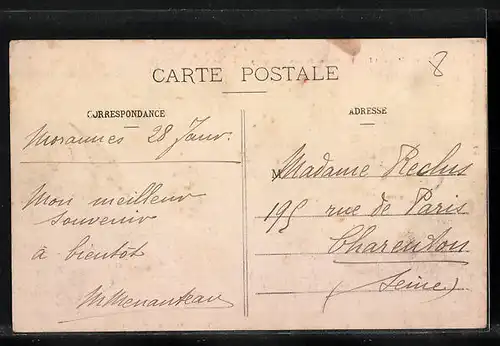 8
CARTE POSTALE
CORRESPONDANCE
ADRESSE
Morannes 28 Janv.
Mon meilleur
souvenir
à bientôt
M Menanteau
M
Madame Reclus
195 rue de Paris
Charenton
(Seine)